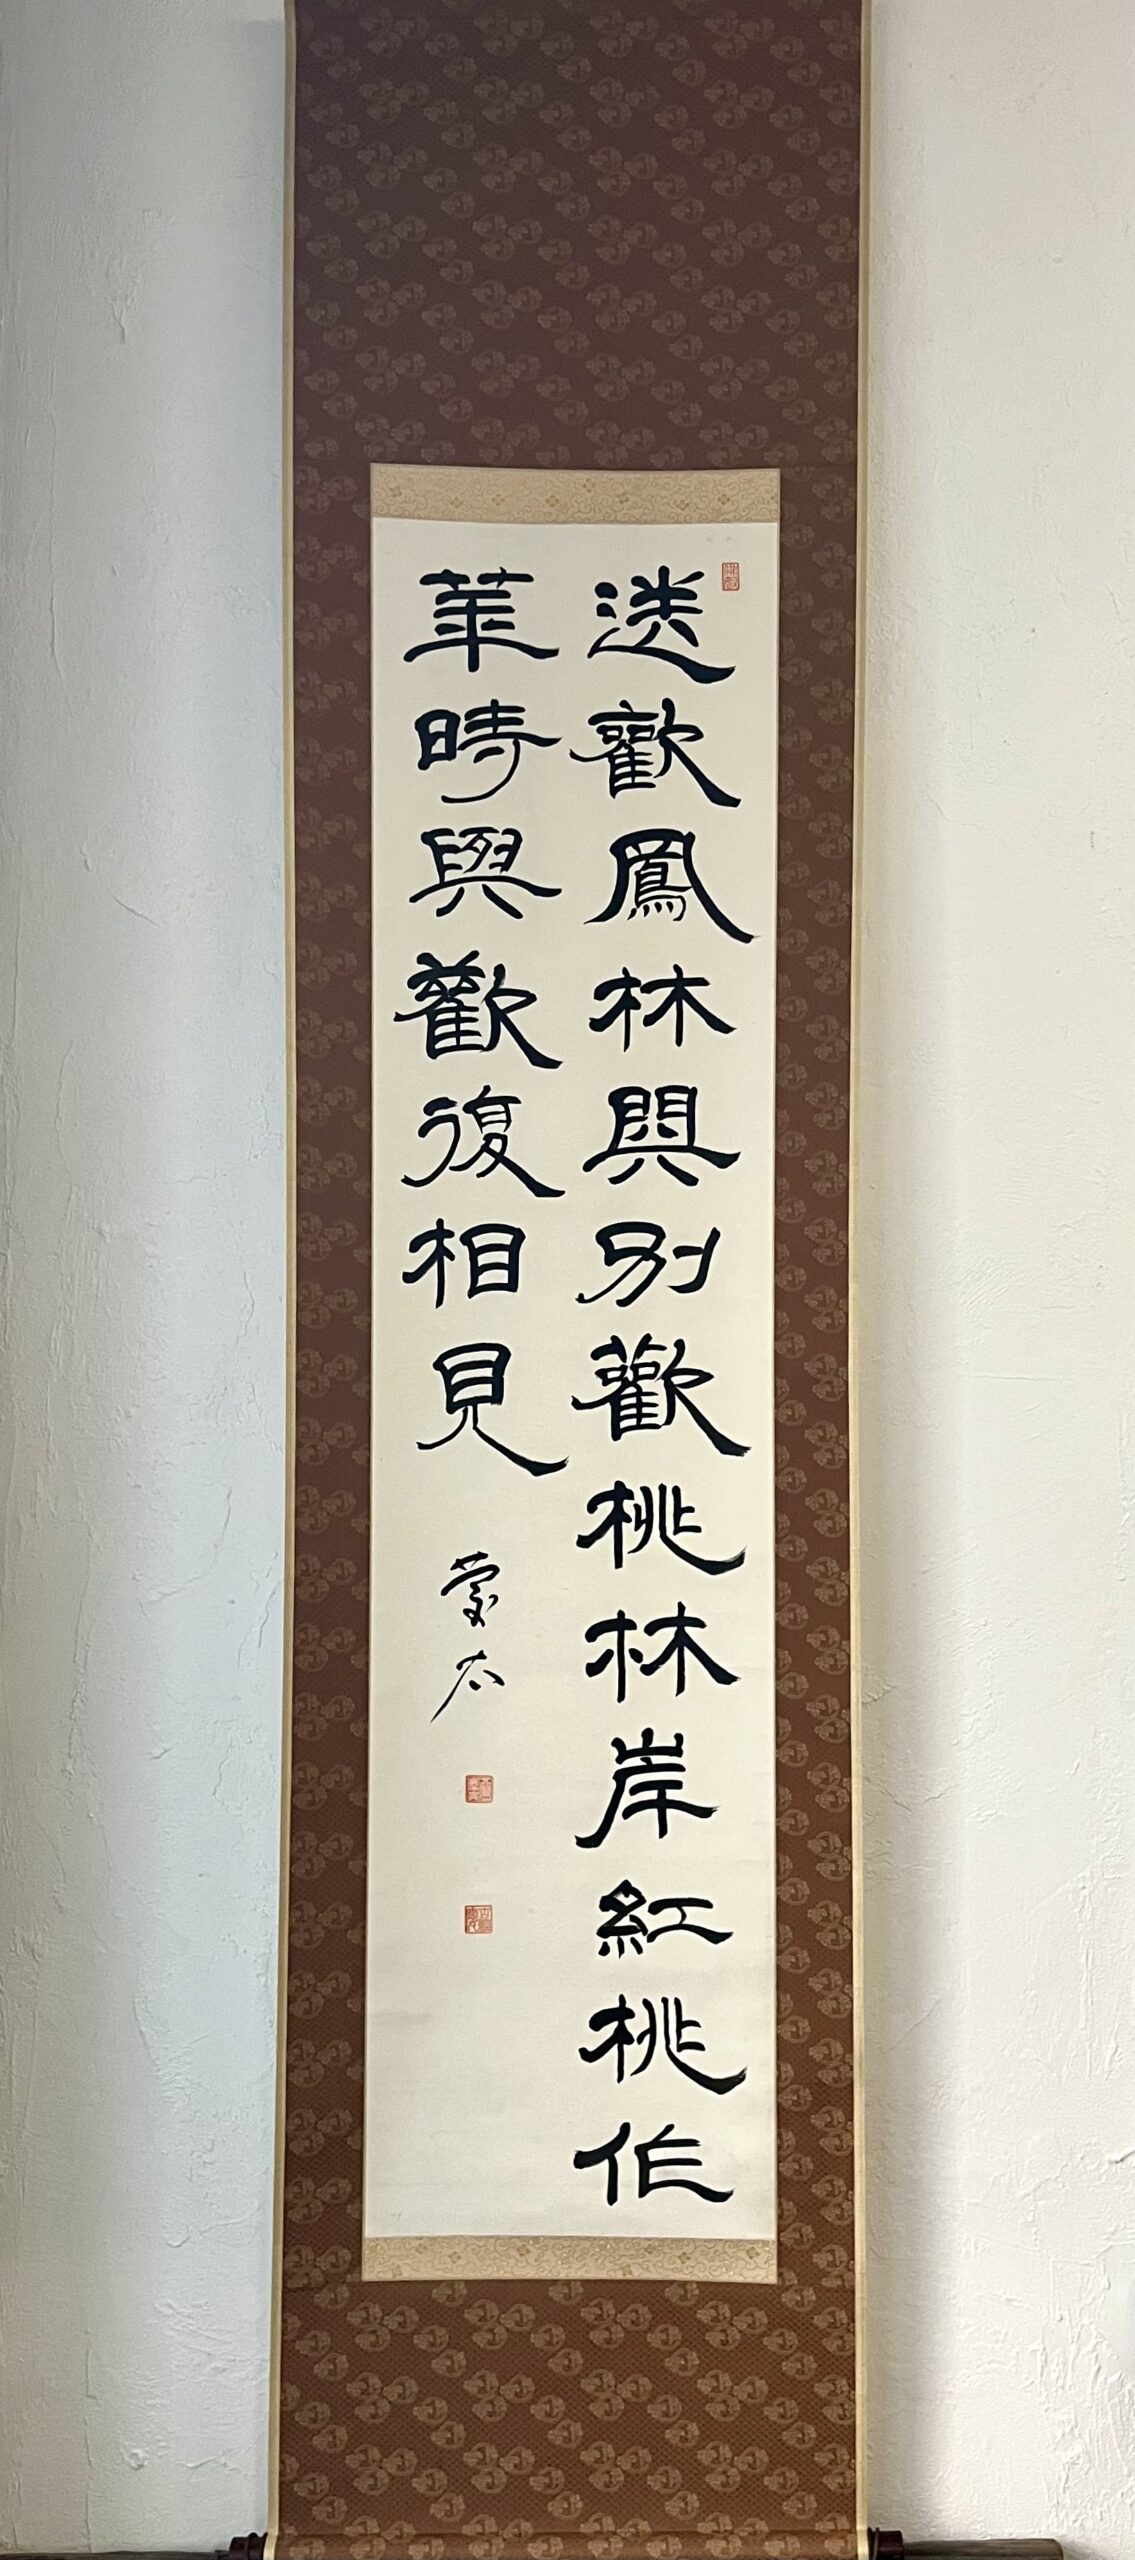 送歡鳳林別歡桃林岸紅桃作
華時與歡復相見